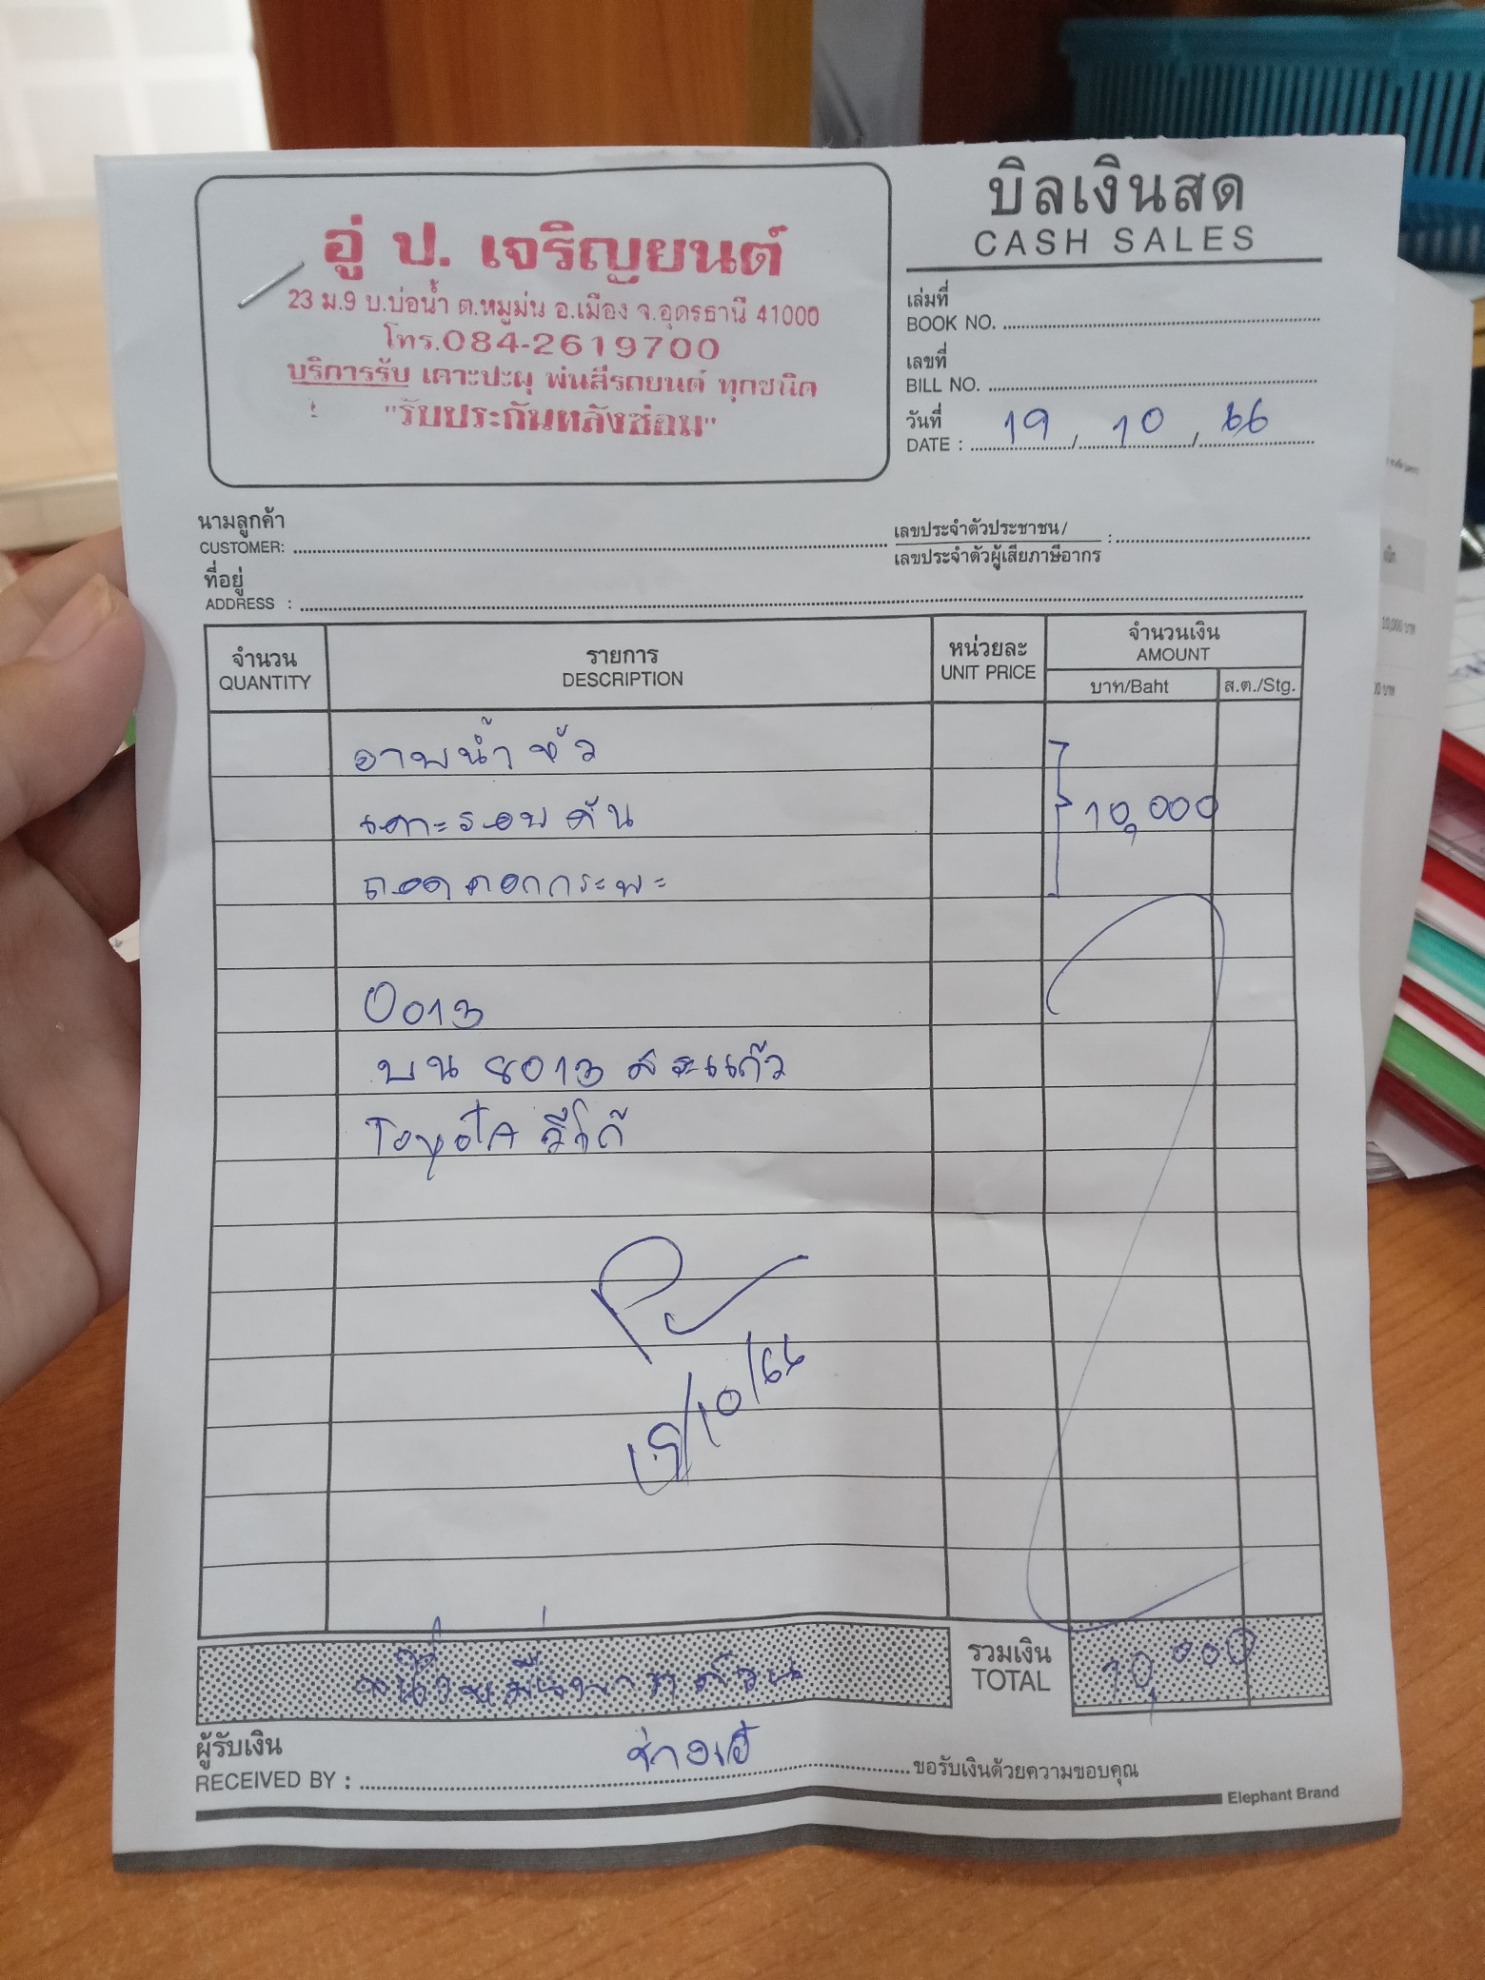 บิลเงินสด
CASH SALES
อู่ ป. เจริญยนต์
23 ม.9 บ.บ่อน้ำ ต.หมูม่น อ.เมือง จ.อุดรธานี 41000
โทร.084-2619700
บริการรับ เคาะปะผุ พ่นสีรถยนต์ ทุกชนิด
"รับประกันหลังซ่อม"
เล่มที่
BOOK NO.
เลขที่
BILL NO.
วันที่
DATE : 19 / 10 / 66
นามลูกค้า
CUSTOMER:
เลขประจำตัวประชาชน/ :
เลขประจำตัวผู้เสียภาษีอากร
ที่อยู่
ADDRESS :
จำนวน รายการ หน่วยละ จำนวนเงิน
QUANTITY DESCRIPTION UNIT PRICE AMOUNT
บาท/Baht ส.ต./Stg.
อาบน้ำ หัว
เคาะรอบคัน 10,000
ถอดดอกกระพะ
0013
บน 8013 สระแก้ว
ToyotA วีโก้
19/10/66
หนึ่งหมื่นบาทถ้วน
รวมเงิน
TOTAL 10,000
ผู้รับเงิน
RECEIVED BY : ช่างเอ๋ ขอรับเงินด้วยความขอบคุณ
Elephant Brand
10,000 บาท